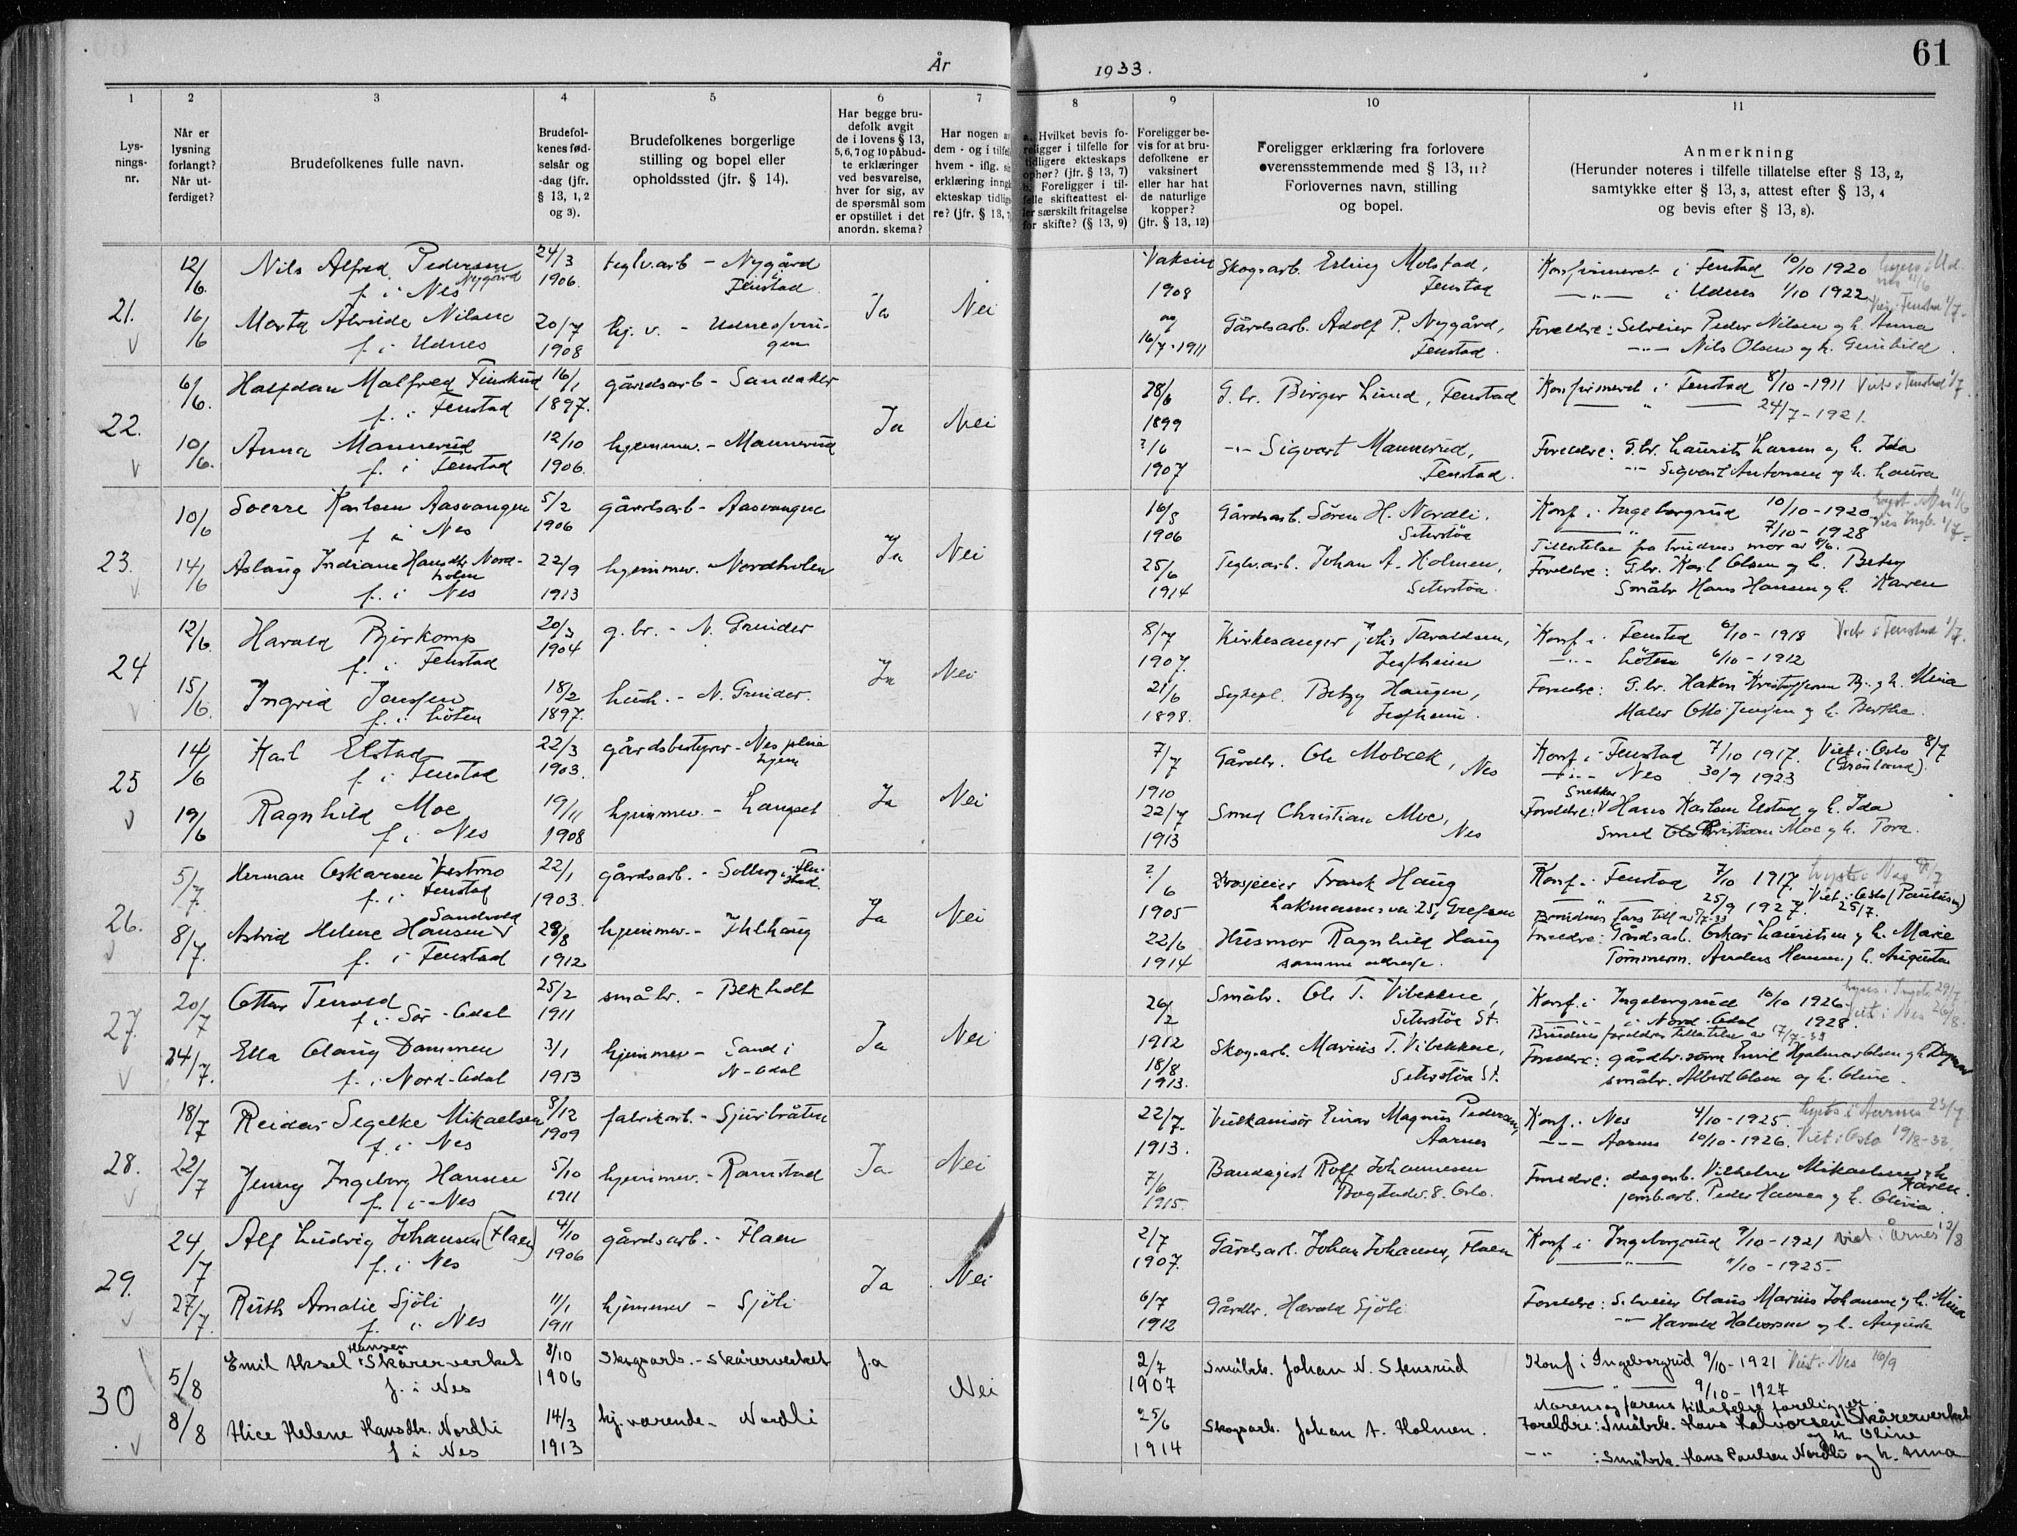 61
År 1933.
1 2 3 4 5 6 7 8 9 10 11
Lys-
nings-
nr.
Når er
lysning
forlangt?
Når ut-
ferdiget?
Brudefolkenes fulle navn.
Brudefol-
kenes fød-
selsår og
-dag (jfr.
§ 13, 1, 2
og 3).
Brudefolkenes borgerlige
stilling og bopel eller
opholdssted (jfr. § 14).
Har begge bru-
defolk avgit
de i lovens § 13,
5, 6, 7 og 10 påbud-
te erklæringer
ved besvarelse,
hver for sig, av
de spørsmål som
er opstillet i det
anordn. skema?
Har nogen a
dem - og i tilfel
hvem - iflg. s
erklæring inng
ekteskap tidlig
re? (jfr. § 13, 7
a. Hvilket bevis fo-
religger i tilfelle for
tidligere ekteskaps
ophør? (jfr. § 13, 7)
b. Foreligger i til-
felle skifteattest el-
ler særskilt fritagelse
for skifte? (§ 13, 9)
Foreligger be-
vis for at bru-
defolkene er
vaksinert
eller har hat
de naturlige
kopper?
(jfr. § 13, 12)
Foreligger erklæring fra forlovere
overensstemmende med § 13, 11?
Forlovernes navn, stilling
og bopel.
Anmerkning
(Herunder noteres i tilfelle tillatelse efter § 13, 2,
samtykke efter § 13, 3, attest efter § 13, 4
og bevis efter § 13, 8).
21.
12/6. Nils Alfred Pedersen 24/3 teglv.arb - Nygård Vaksin Skogsarb. Erling Molstad, Konfirmeret i Fenstad 10/10 1920
Nygård
f. i Nes 1906. i Fenstad 1908 Fenstad —"— i Udnes 1/10 1922 Viet i Fenstad 1/7.
16/6 Marta Alvilde Nilsen 20/7 hj. v. - Udnes Ja Nei og Gårdsarb. Adolf P. Nygård, Foreldre: Selveier Peder Nilsen og h. Anna
f. i Udnes 1908 16/7-1911 Fenstad. —"— Nils Olsen og h. Gunhild.
22.
6/6. Halfdan Malfred Finskud 16/1 gårdsarb - Sandaker 28/6 G. br. Birger Lund, Fenstad Konfirmeret i Fenstad 8/10-1911 Viet i Fenstad 1/7.
f. i Fenstad 1897. Ja Nei 1899 —"— 24/7-1921.
10/6. Anna Mannerud 12/10 hjemmev. - Mannerud 3/6 -"- Sigvart Mannerud, Foreldre: G.br. Laurits Larsen og h. Ida
f. i Fenstad 1906. 1907 Fenstad. -"- Sigvart Antonsen og h. Laura
23.
10/6 Sverre Karlsen Aasvangen 5/2 gårdsarb - Aasvangen 16/5 Gårdsarb. Søren H. Nordli. Konf. i Ingeborgrud 10/10-1920
f. i Nes 1906 Ja Nei 1906 Seterstøa 7/10-1928
14/6 Aslaug Indiane Hansdtr. Nord- 22/9 hjemmev. Nordholen 25/6 Teglv.arb. Johan A. Holmen, Tillatelse fra brudens mor av 8/6.
holen
f. i Nes 1913 1914 Seterstøa. Foreldre: G.br. Karl Olsen og h. Betsy
Småbr Hans Hansen og h. Karen
24
12/6. Harald Bjerkomp 20/3 g.br. - N. Grinder 8/7 Kirkesanger Johs Taraldsen, Konf. i Fenstad 6/10-1918 Viet i Fenstad 1/7.
f. i Fenstad 1904 Ja Nei 1907. Jessheim -"- Löten 6/10-1912
15/6. Ingrid Jensen 18/2 hush. - N. Grinder. 21/6 Sykepl. Betzy Haugen, Foreldre: G. br. Hakon Kristoffersen Bj. og h. Mina
f. i Löten 1897. 1898. Jessheim. Maler Otto Jensen og h. Berthe.
25
14/6 Karl Elstad 22/3 gårdsbestyrer - Nes pleie 7/7 Gårdbr. Ole Mobæk, Nes Konf i Fenstad 7/10 1917. Viet i Oslo 8/7
hjem
f. i Fenstad 1903. 1910 -"- Nes 30/9 1923 (Grønland).
19/6 Ragnhild Moe 19/11 hjemmev - Langset Ja Nei 22/7 Smed Christian Moe, Foreldre: Snekker Hans Karlsen Elstad og h. Ida
f. i Nes 1908 1913 Nes Smed Christian Moe og h. Tora.
26.
5/7. Herman Oskarsen Vestmo 22/1 gårdsarb. - Solberg i Fen-
stad.
?/6 Frank Haug Konf. i Fenstad 7/10 1917.
f. i Fenstad 1903. 1905 Lakmannsvei 25, Grefsen 25/9 1927. Viet i Oslo (Paulus) 25/7.
Sandvold
8/7. Astrid Helene Hansen 28/8 hjemmev. - Ihlhaug Ja Nei 22/6 Husmor Ragnhild Haug Foreldre: Gårdsarb. Oskar Lauritsen og h. Marie
f. i Fenstad 1912 1914 samme adresse. Tömmerm. Anders Hansen og h. Augusta
27.
20/7 Ottar Tenvold 25/2 småbr. - Bekholt 26/2 Småbr. Ole T. Vibekken, Konf. i Ingeborgrud 10/10 1926
f. i Sør-Odal 1911 1912 Seterstøa St. i Nord-Odal 1928. Viet i Nes 26/8.
24/7. Ella Olaug Dammen 3/1 hjemmev - Sand i Ja Nei 18/8 Skogsarb. Marius T. Vibekken, Brudens foreldres tillatelse av 17/7-33
f. i Nord-Odal 1913 N-Odal 1913. Seterstøa St. Foreldre: gårdbr. Emil Hjalmar Olsen og h Dagmar
småbr. Albert Olsen og h. Oline.
28.
18/7 Reidar Segelke Mikaelsen 8/12 fabrikarb. - Sjuribråten 22/7. Vulkanisør Einar Magnus Pedersen, Konf. i Nes 4/10-1925. lyst i Aarnes 23/7
f. i Nes 1909 Ja Nei 1913. Aarnes -"- Aarnes 10/10-1926. Viet i Oslo 19/8-33.
22/7 Jenny Ingeborg Hansen 5/10 hjemmev. - Ramstad 7/6 Bandagist Rolf Johannesen Foreldre: dagarb. Vilhelm Mikaelsen og h Karen.
f. i Nes 1911 1915. Bogstadv. 8. Oslo. jernb.arb. Peder Hansen og h. Olivia.
29.
24/7 Alf Ludvig Johansen (Flaen) 4/10 gårdsarb. - Flaen 2/7 Gårdsarb. Johan Johansen, Flaen Konf i Ingeborgrud 9/10-1921 viet i Årnes 12/8
f. i Nes 1906 Ja Nei 1907. —"— 11/10-1925.
27/7. Ruth Amalie Sjöli 11/1 hjemmev - Sjöli 6/7 Gårdbr. Harald Sjöli Foreldre: Selveier Olaus Marius Johansen og h. Mina
f. i Nes 1911 1912 -"- Harald Halvorsen og h. Auguste
30
Hansen
5/8 Emil Aksel Skårerverket 8/10 Skogsarb. - Skårerverket Ja 2/7 Småbrk. Johan N. Stensrud Konf i Ingeborgrud 9/10-1921 Viet i Nes 16/9
f. i Nes 1906 Nei 1907 —"— 9/10-1927
8/8 Alice Helene Hansdtr. Nordli 14/3 hj. værende - Nordli 25/6 Skogsarb. Johan A. Holmen. Morens og farens tillatelse foreligger.
f i Nes 1913 1914 Foreldre: Småbrk. Hans Halvorsen Skårerverket
og h. Oline
-"- : Småbrk. Hans Paulsen Nordli og h. Anna